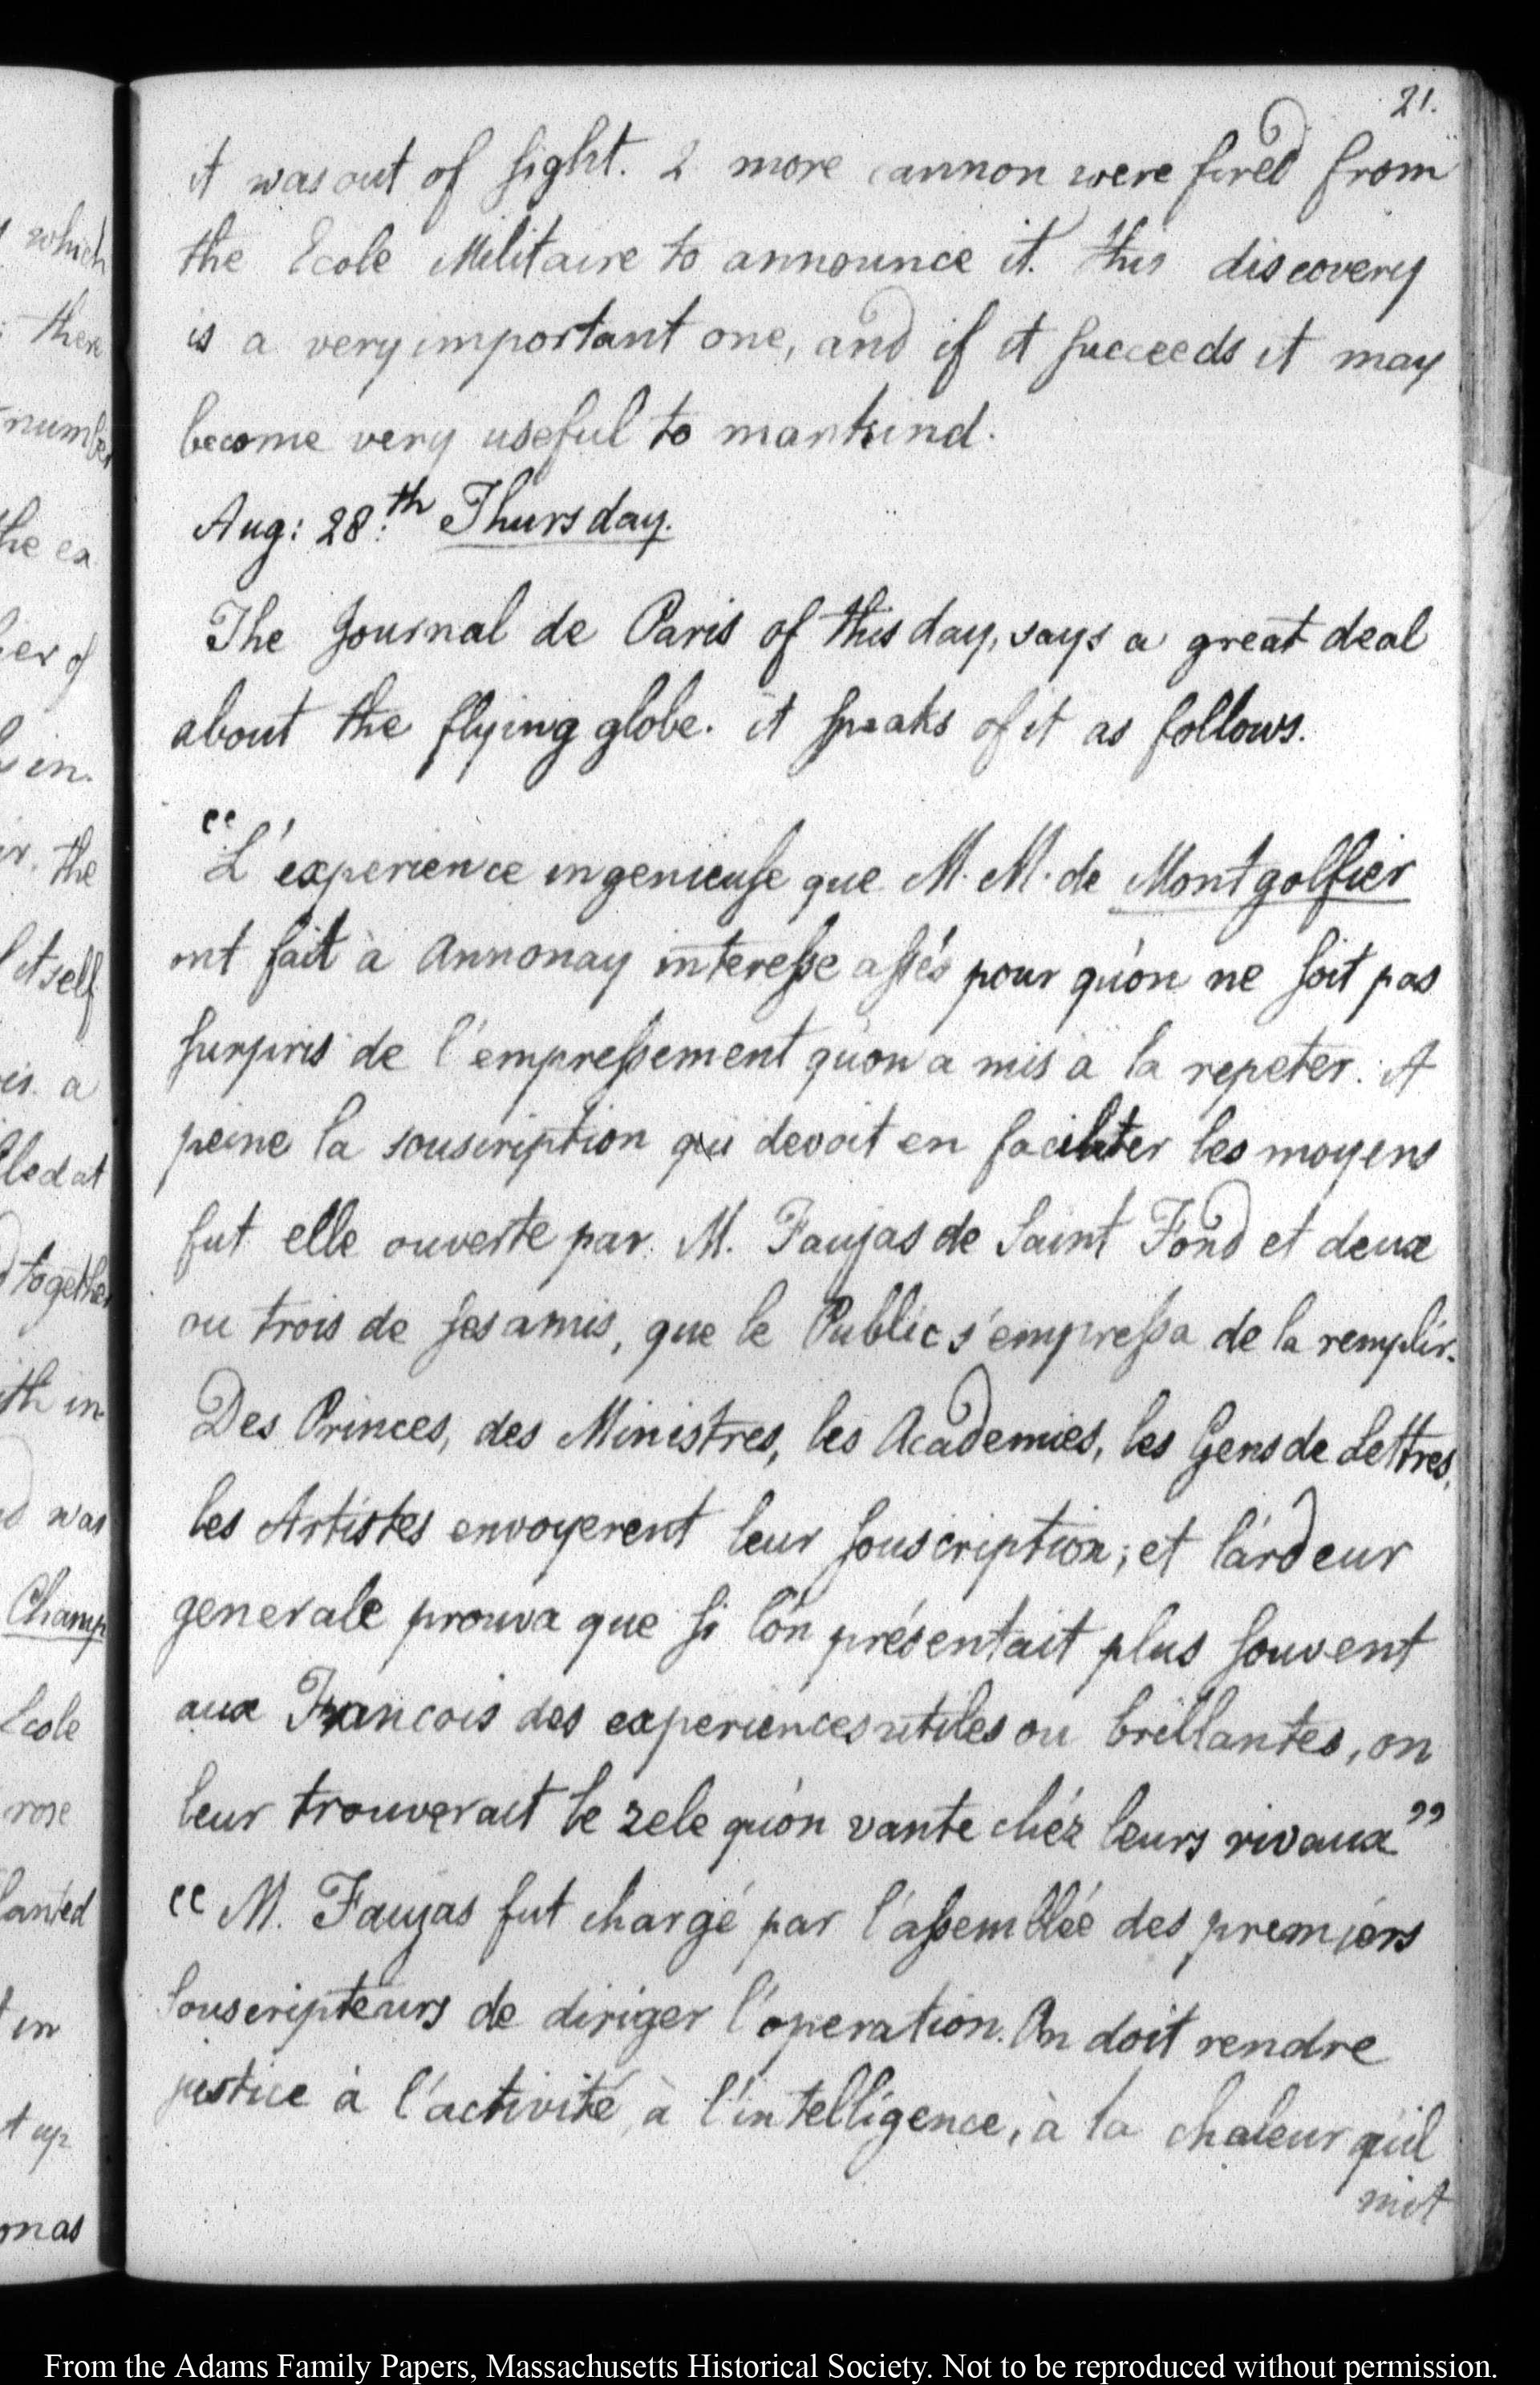 21.
it was out of sight. 2 more cannon were fired from
the Ecole Militaire to announce it. this discovery
is a very important one, and if it succeeds it may
become very useful to mankind.
Aug: 28.th Thursday.
The Journal de Paris of this day, says a great deal
about the flying globe. it speaks of it as follows.
"L'experience ingenieuse que M. M. de Montgolfier
ont fait à Annonay interesse assés pour qu'on ne soit pas
surpris de l'empressement qu'on a mis a la repeter. A
peine la souscription qui devoit en faciliter les moyens
fut elle ouverte par M. Faujas de Saint Fond et deux
ou trois de ses amis, que le Public s'empressa de la remplir.
Des Princes, des Ministres, les Academies, les Gens de Lettres,
les Artistes envoyerent leur souscription; et l'ardeur
generale prouva que si l'on présentait plus souvent
aux Francois des experiences utiles ou brillantes, on
leur trouverait le zele qu'on vante chéz leurs rivaux"
"M. Faujas fut chargé par l'assemblée des premiérs
souscripteurs de diriger l'operation. On doit rendre
justice à l'activité, à l'intelligence, à la chaleur qu'il
mit
which
there
number
the ex
her of
in.
the
itself
a
together
th in
was
Champ
Ecole
rose
in
t up
mas
From the Adams Family Papers, Massachusetts Historical Society. Not to be reproduced without permission.